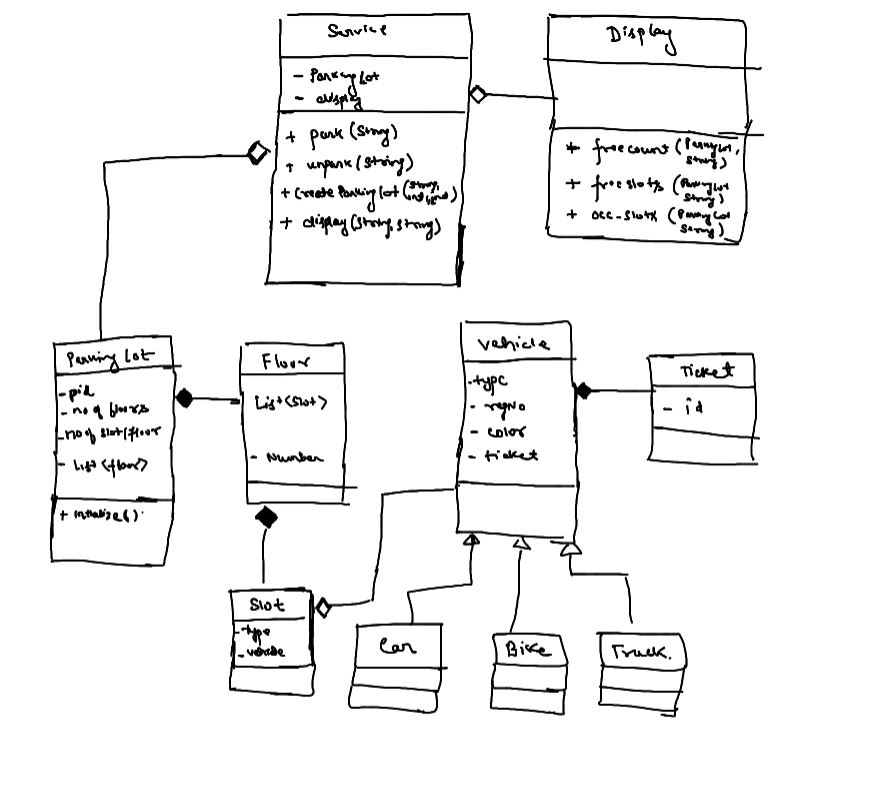 Service
- Parking Lot
- display
+ park (String)
+ unpark (String)
+ Create Parking Lot (String, int, int)
+ display (String, String)
Display
+ free count (Parking Lot, String)
+ free slots (Parking Lot String)
+ occ-slots (Parking Lot String)
Parking Lot
- pid
- no of floors
- no of slot/floor
- List <floor>
+ initialize( )
Floor
List <Slot>
- Number
Vehicle
- type
- regNo
- color
- ticket
Ticket
- id
Slot
- type
- vehicle
Car
Bike
Truck.